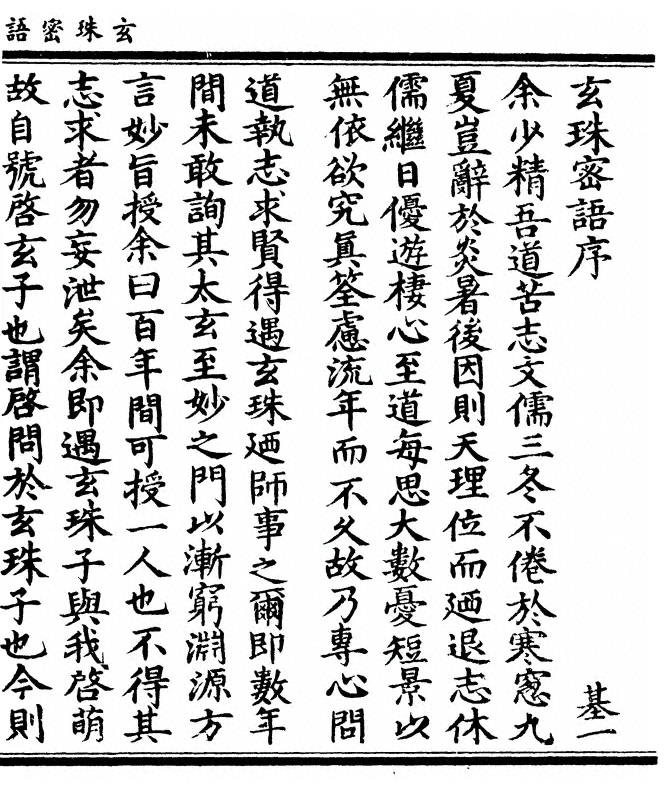 玄珠密語
玄珠密語序
基一
余少精吾道苦志文儒三冬不倦於寒窻九
夏豈辭於炎暑後因則天理位而廼退志休
儒繼日優遊棲心至道每思大數憂短景以
無依欲究眞筌慮流年而不久故乃專心問
道執志求賢得遇玄珠廼師事之爾即數年
間未敢詢其太玄至妙之門以漸窮淵源方
言妙旨授余曰百年間可授一人也不得其
志求者勿妄泄矣余即遇玄珠子與我啓萌
故自號啓玄子也謂啓問於玄珠子也今則